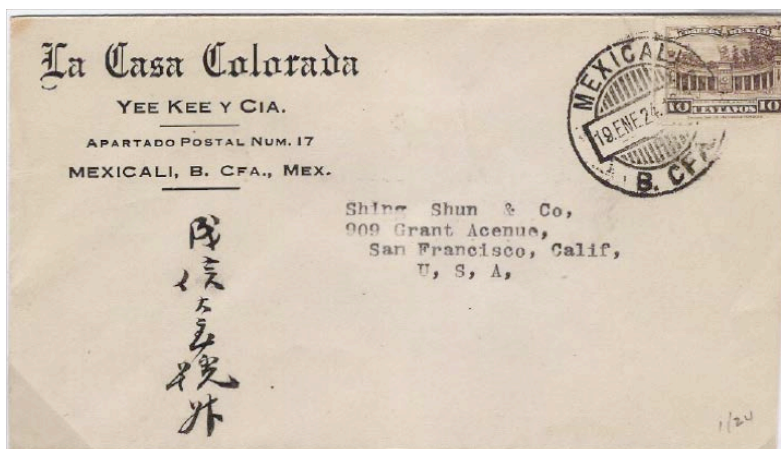 La Casa Colorada
YEE KEE Y CIA.
APARTADO POSTAL NUM. 17
MEXICALI, B. CFA., MEX.
MEXICALI
19.ENE.24.
B. CFA
10 CENTAVOS 10
Shing Shun & Co,
909 Grant Acenue,
San Francisco, Calif,
U, S, A,
1/24